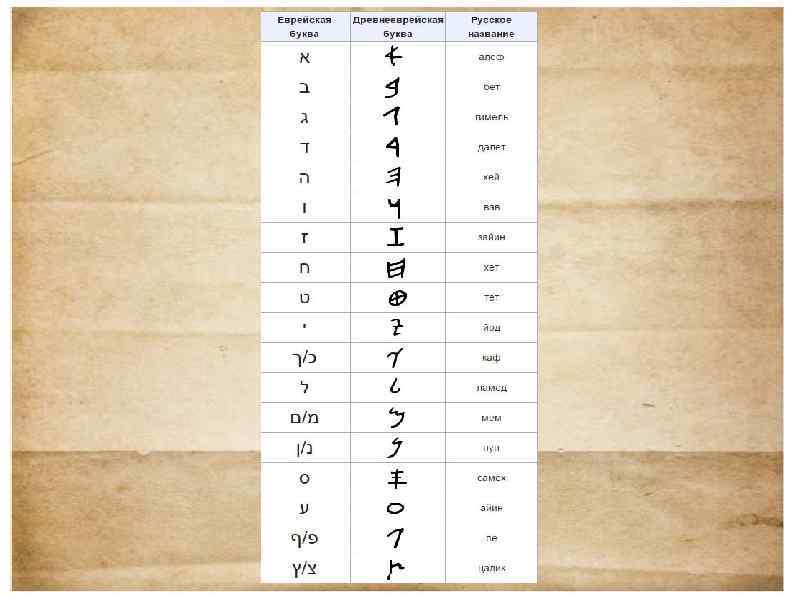 Еврейская буква Древнееврейская буква Русское название
א 𐤀 алеф
ב 𐤁 бет
ג 𐤂 гимель
ד 𐤃 далет
ה 𐤄 хей
ו 𐤅 вав
ז 𐤆 зайин
ח 𐤇 хет
ט 𐤈 тет
י 𐤉 йод
כ/ך 𐤊 каф
ל 𐤋 ламед
מ/ם 𐤌 мем
נ/ן 𐤍 нун
ס 𐤎 самех
ע 𐤏 айин
פ/ף 𐤐 пе
צ/ץ 𐤑 цадик